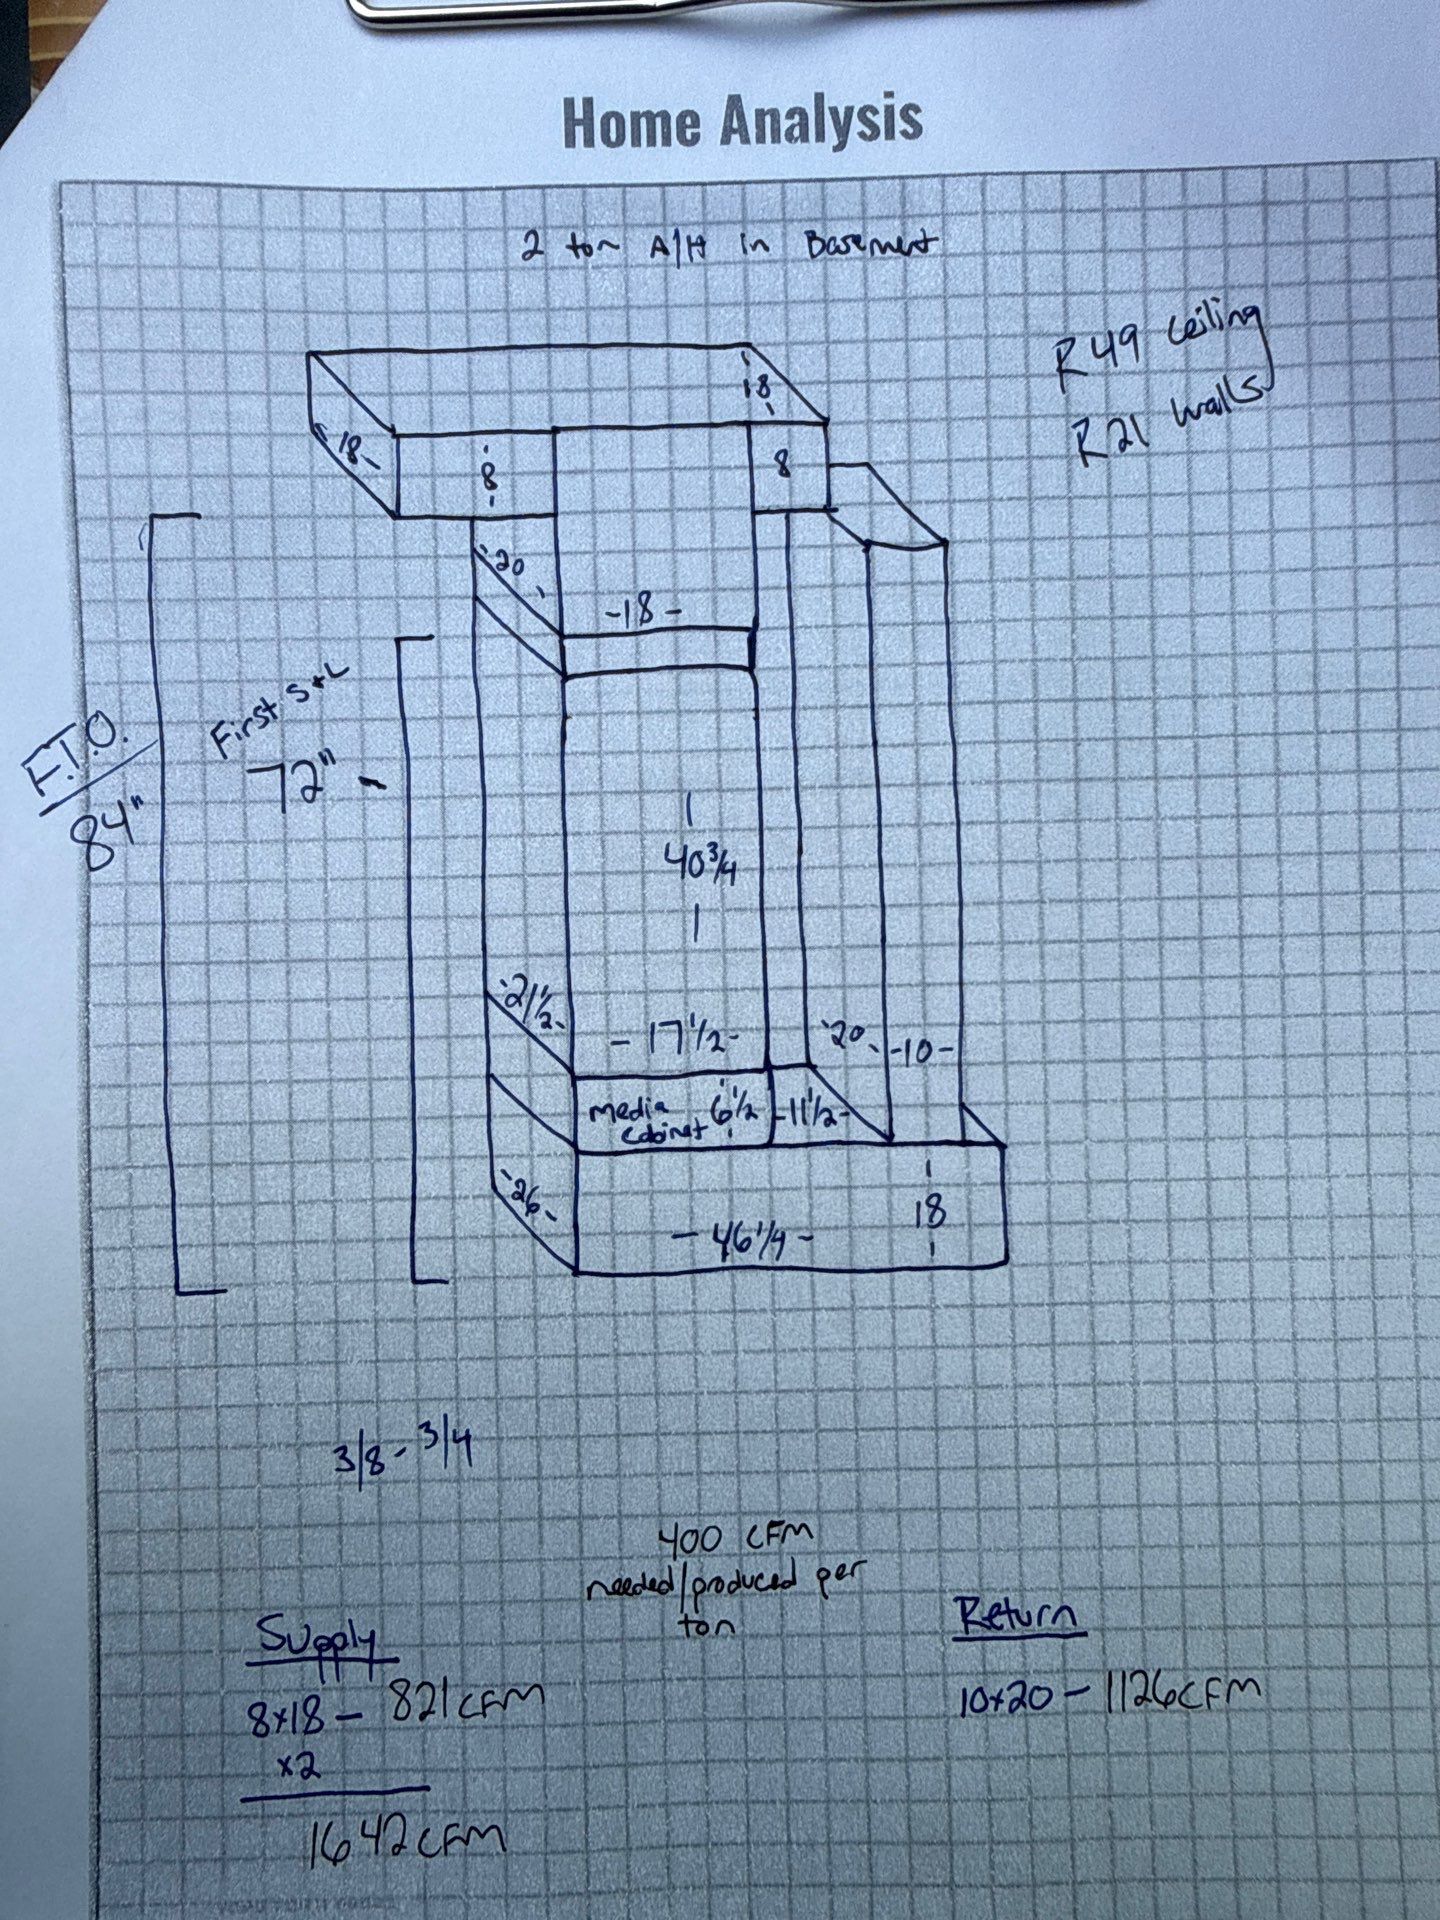 Home Analysis
2 ton A/H in Basement
R49 Ceiling
R21 Walls
18
-18-
8
8
20
-18-
F.T.O.
84"
First S+L
72" -
40 3/4
21 1/2-
- 17 1/2-
20
-10-
Media Cabinet
6 1/2
-11 1/2-
26-
- 46 1/4 -
18
3/8 - 3/4
400 CFM
needed/produced per
ton
Supply
8x18 - 821 CFM
x2
1642 CFM
Return
10x20 - 1126 CFM